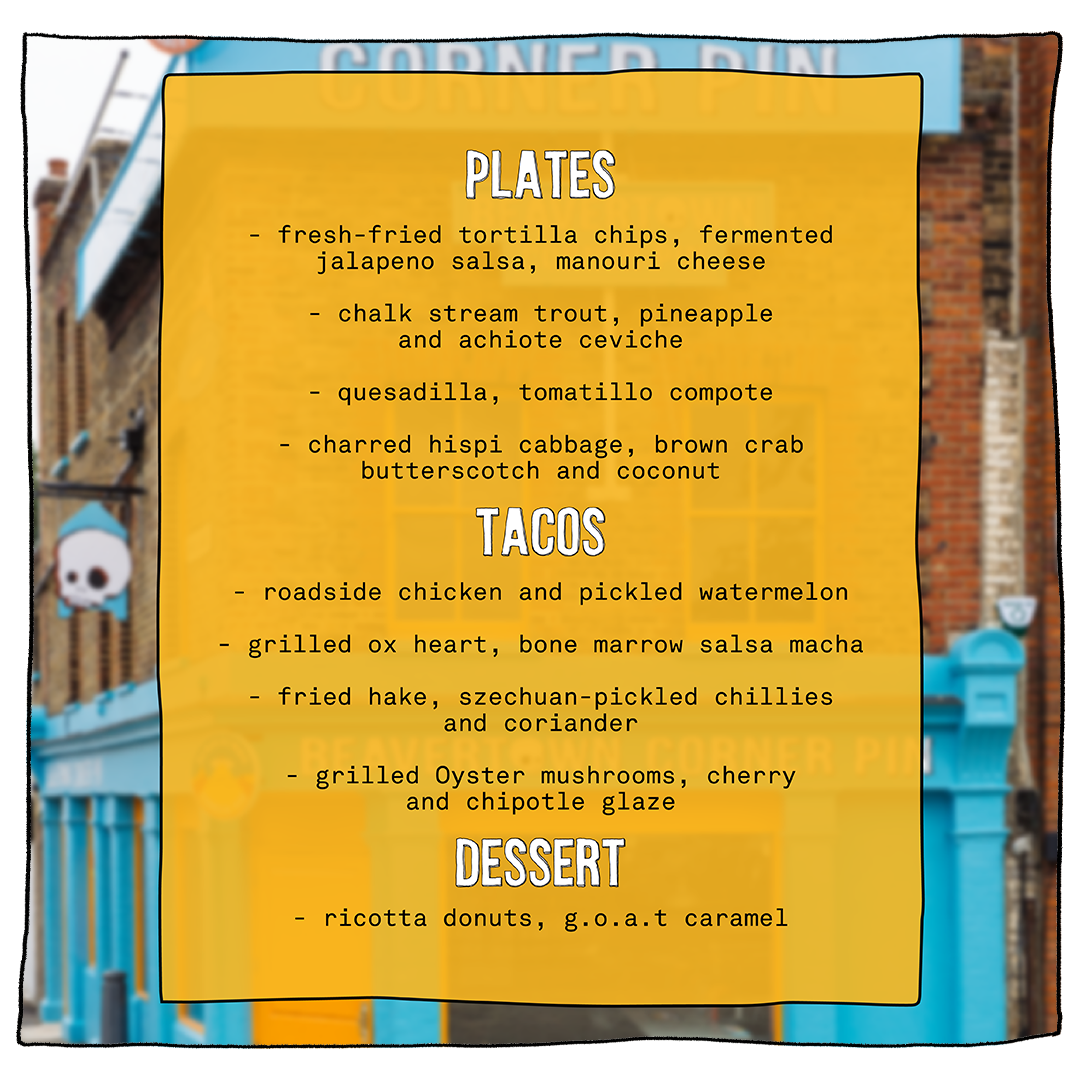 CORNER PIN
PLATES
- fresh-fried tortilla chips, fermented
jalapeno salsa, manouri cheese
- chalk stream trout, pineapple
and achiote ceviche
- quesadilla, tomatillo compote
- charred hispi cabbage, brown crab
butterscotch and coconut
TACOS
- roadside chicken and pickled watermelon
- grilled ox heart, bone marrow salsa macha
- fried hake, szechuan-pickled chillies
and coriander
BEAVERTOWN CORNER PIN
- grilled Oyster mushrooms, cherry
and chipotle glaze
DESSERT
- ricotta donuts, g.o.a.t caramel